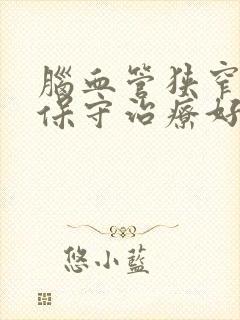 腦血管狹窄
保守治療好
悠小藍